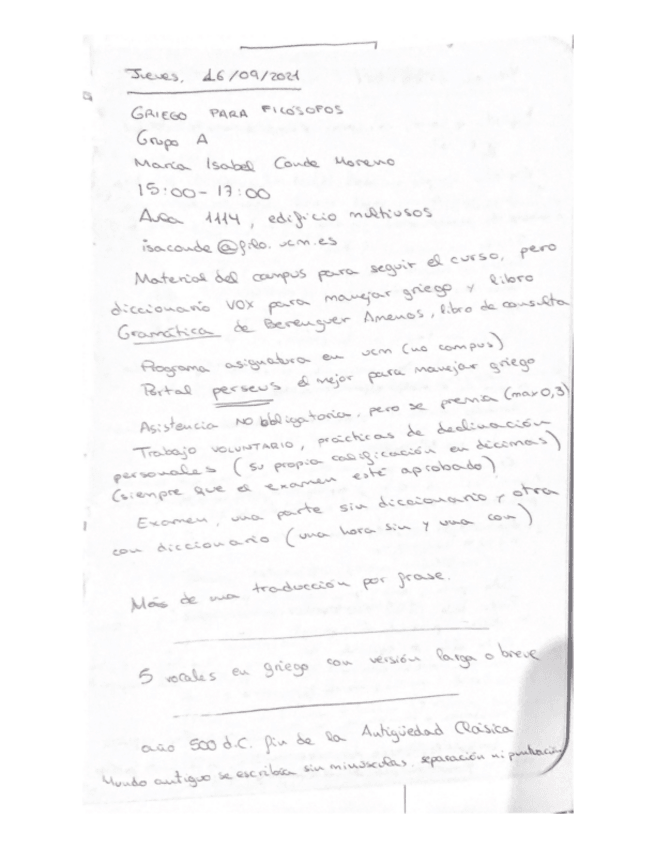 Jueves, 16/09/2021
GRIEGO PARA FILÓSOFOS
Grupo A
María Isabel Conde Moreno
15:00 - 17:00
Aula 1114, edificio multiusos
isaconde@filo.ucm.es
Material del campus para seguir el curso, pero
diccionario VOX para manejar griego y libro
Gramática de Berenguer Amenos, libro de consulta
Programa asignatura en ucm (no campus)
Portal perseus el mejor para manejar griego
Asistencia NO obligatoria, pero se premia (max 0,3)
Trabajo VOLUNTARIO, prácticas de declinación
personales (su propia calificación en décimas)
(siempre que el examen esté aprobado)
Examen, una parte sin diccionario y otra
con diccionario (una hora sin y una con)
Más de una traducción por frase.
5 vocales en griego con versión larga o breve
año 500 d.C. fin de la Antigüedad Clásica
Mundo antiguo se escribía sin minúsculas, separación ni puntuación